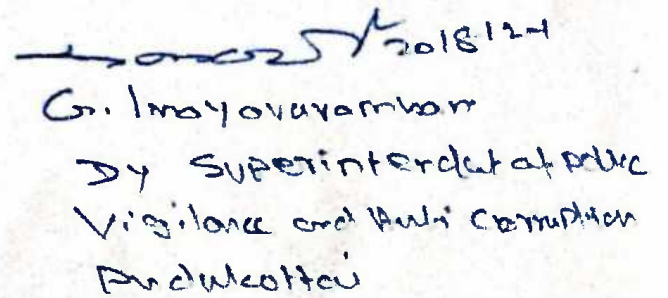 20181221
G. Imayavaramban
Dy Superintendent of police
Vigilance and Anti Corruption
Pudukottai